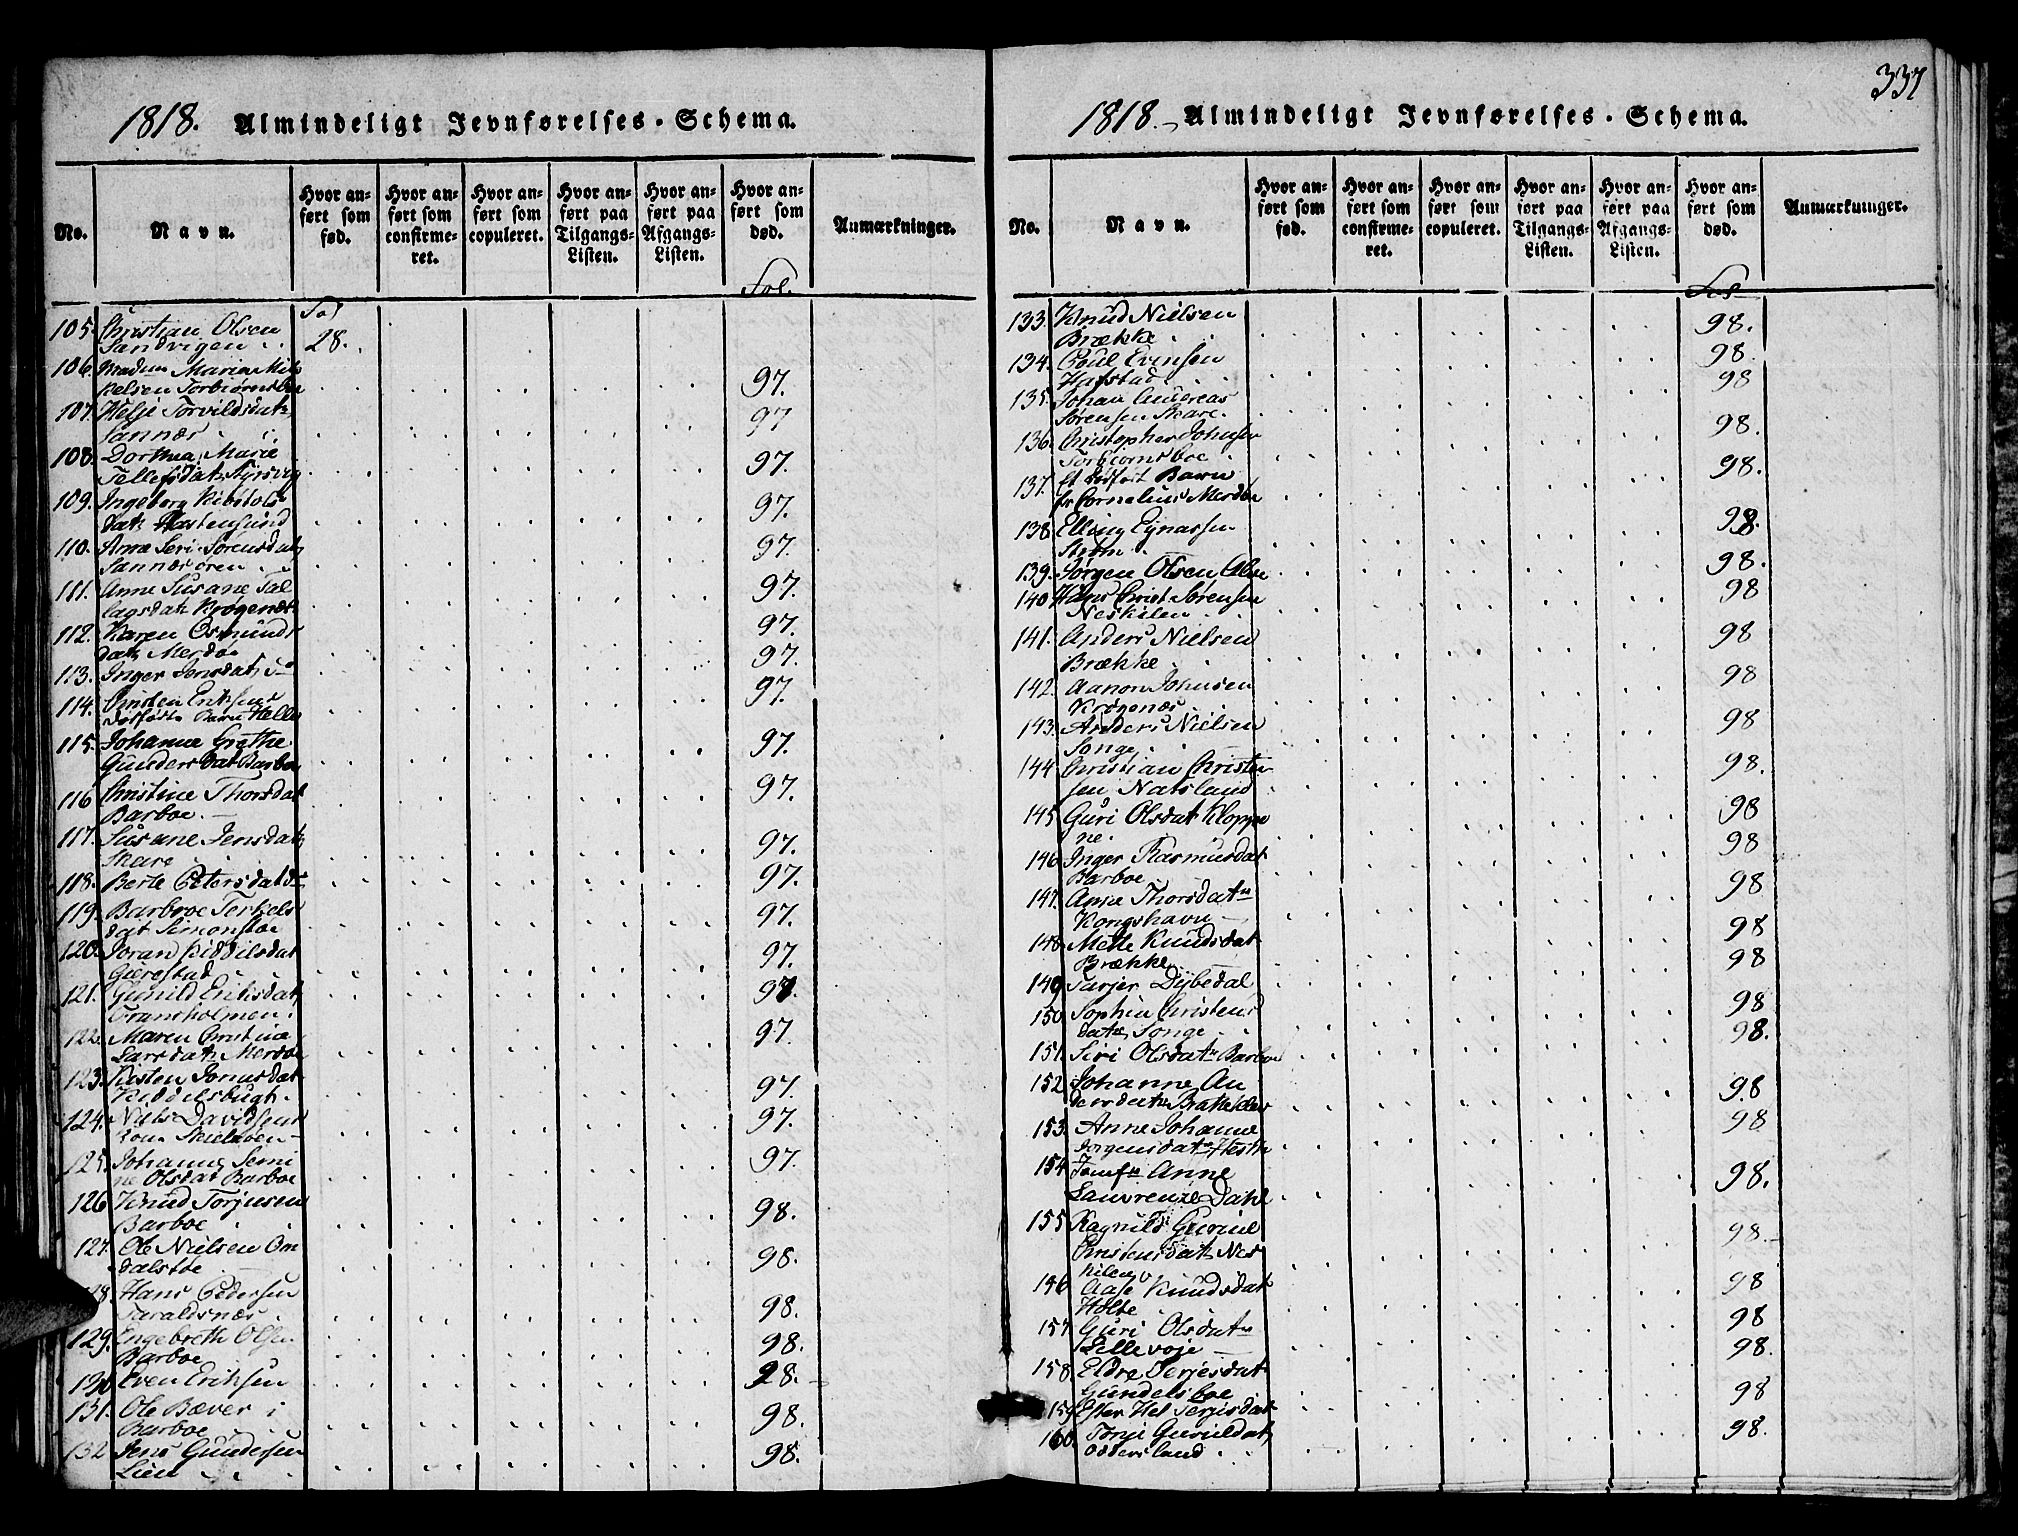 1818. Almindeligt Jevnførelses-Schema.
No.
Navn.
Hvor an-
ført som
fød.
Hvor an-
ført som
confirme-
ret.
Hvor an-
ført som
copuleret.
Hvor an-
ført paa
Tilgangs-
Listen.
Hvor an-
ført paa
Afgangs-
Listen.
Hvor an-
ført som
død.
Anmærkninger.
Fol. Fol.
105. Christian Olsen
Sandvigen 28.
106. Madm Maria Mik
kelsen Torbiørnsboe 97.
107. Helje Torvildsdatr
Sannær 97
108. Dorthea Marie
Tellefsdatr 97.
109. Ingeborg
datr Hastensund 97.
110. Anne Seri Sørensdatr
Sannærøren 97.
111. Anne Susane Sal
lagsdatr Krøgenæs 97.
112. Karen Osmunds
datr Merdøe 97.
113. Inger Jensdatr do 97.
114. Christen Eriksens
dødfødte Barn Kelle 97.
115. Johanne Grethe
Gundersdat Barboe 97.
116 Christine Thorsdat
Barboe. 97.
117. Susane Jensdatr
Skare 97.
118. Berte Petersdat do 97.
119. Barbroe Terkels
dat Simonstøe 97.
120. Joran Kiddilsdat
Gierestad 97.
121. Gunild Eriksdatr
Tranholmen. 97.
122. Maren Christine
Larsdatr Merdøe 97.
123. Kisten Jonasdat
Kiddelsbugt. 97.
124. Niels Davidsens
Kone 97.
125. Johanne Semi
ne Olsdat Barboe 97.
126 Knud Torjusen
Barboe 98.
127. Ole Nielsen Om
dalstøe 98.
128. Hans Pedersen
Taraldsnæs 98.
129. Engebreth Olsen
Barboe 98.
130 Even Eriksen 98.
131. Ole Bæver i
Barboe 98.
132 Jens Gundersen
Lien 98.
337
1818. Almindeligt Jevnførelses-Schema.
No.
Navn.
Hvor an-
ført som
fød.
Hvor an-
ført som
confirme-
ret.
Hvor an-
ført som
copuleret.
Hvor an-
ført paa
Tilgangs-
Listen.
Hvor an-
ført paa
Afgangs-
Listen.
Hvor an-
ført som
død.
Anmærkninger.
Fol
133. Knud Nielsen
Brække 98.
134. Poul Evensen
Hafstad 98.
135. Johan Andreas
Sørensen Skare. 98
136 Christopher Johnsen
Torbiørnsboe 98.
137. Et dødfødt Barn
fr Cornelius Merdøe 98.
138. Elling Eynarsen
Strøm 98.
139. Jørgen Olsen 98.
140 Hans Christ Sørensen
Neskilen 98
141. Anders Nielsen
Brække 98
142. Aanon Johnsen
Krøgenæs 98
143. Anders Nielsen
Songe 98
144 Christian Christen
sen Natsland 98.
145 Guri Olsdat Kloppe
ne 98
146 Inger Rasmusdat
Barboe 98
147. Anne Thorsdatr
Kongshavn 98
148. Mette Knudsdat
Brække 98
149 Tarjer Dybedal 98
150 Sophia Christens
datr Songe 98
151. Siri Olsdatr Barboe 98.
152 Johanne An
dersdatr Brattekler 98
153. Anne Johanne
Jørgensdatr 98
154 Jomfr Anne
Laurenze Dahl 98.
155 Ragnild Gurine
Christensdatr Nes
kilen 98.
156 Aase Knudsdat
Holte 98
157 Guri Olsdatr
Lillevoje 98
158 Eldre Terjesdat
Gundelsboe 98.
159 Ester Hel Terjesdat 98
160. Torje Guruldatr
Oddersland 98.